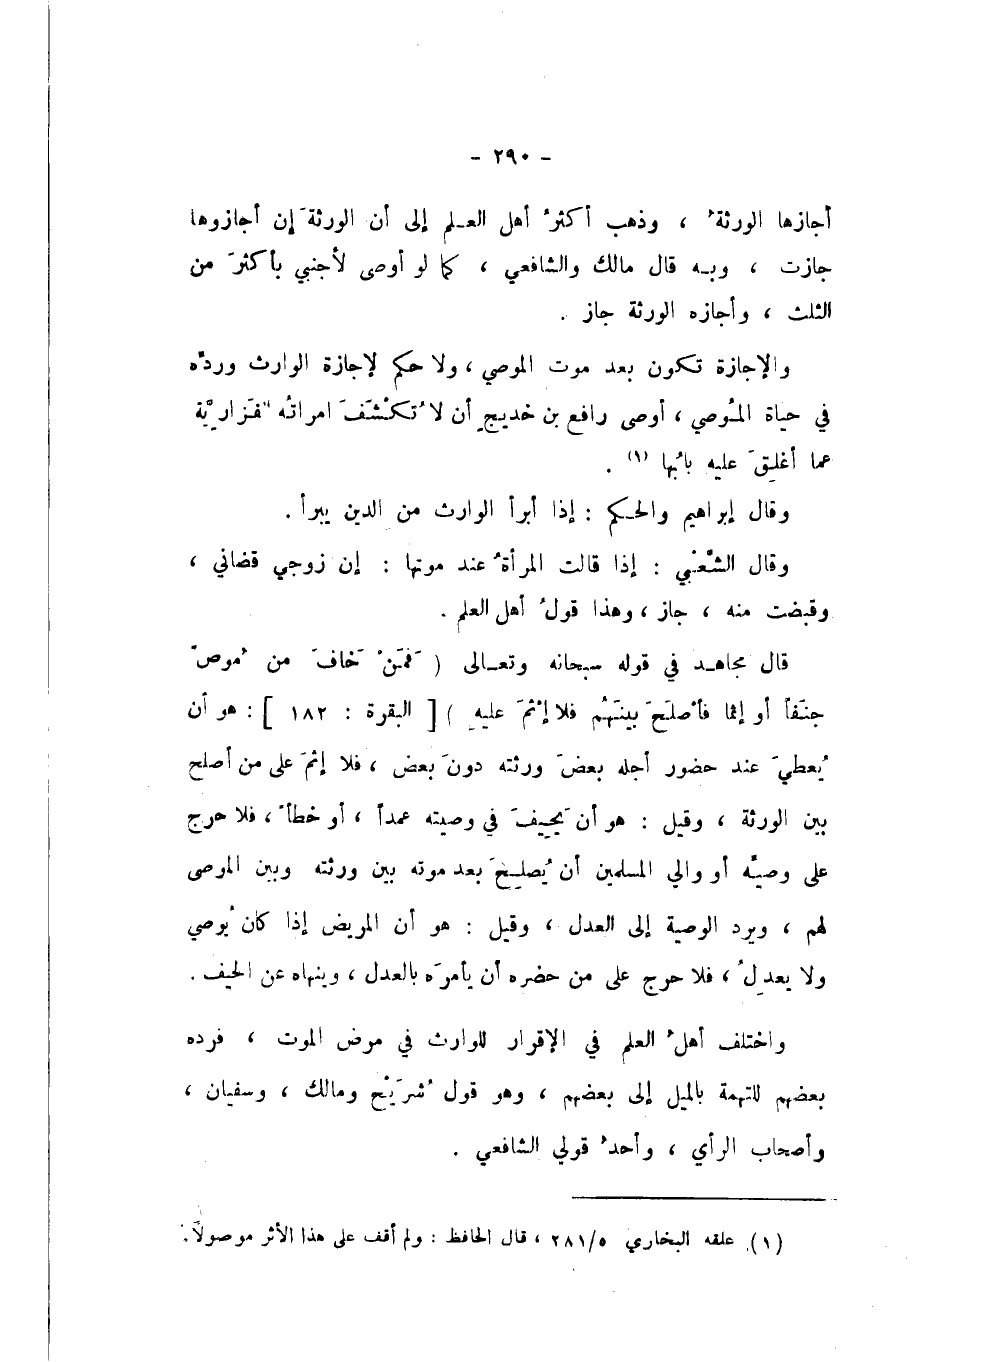 - ٢٩٠ -
أجازها الورثةُ ، وذهب أكثرُ أهل العـلم إلى أن الورثةَ إن أجازوها
جازت ، وبـه قال مالك والشافعي ، كما لو أوصى لأجنبي بأكثرَ من
الثلث ، وأجازه الورثة جاز .
والإجازة تكون بعد موت الموصي ، ولا حكم لإجازة الوارث وردِّه
في حياة المُوصي ، أوصى رافع بن خديجٍ أن لا تُكْشَفَ امرأتُه الفَزاريَّة
عما أغلِقَ عليه بابُها (١) .
وقال إبراهيم والحـكم : إذا أبرأ الوارث من الدين يبرأ .
وقال الشَّعْبي : إذا قالت المرأةُ عند موتها : إن زوجي قضاني ،
وقبضت منه ، جاز ، وهذا قولُ أهل العلم .
قال مجاهـد في قوله سبحانه وتعـالى ( فَمَنْ خَافَ من مُوصٍ
جنَفاً أو إثما فأصْلَحَ بينَهُم فلا إثْمَ عليهِ ) [ البقرة : ١٨٢ ] : هو أن
يُعطيَ عند حضور أجله بعضَ ورثته دونَ بعض ، فلا إثمَ على من أصلح
بين الورثة ، وقيل : هو أن يَحِيفَ في وصيته عمداً ، أو خطأً ، فلا حرج
على وصيِّه أو والي المسلمين أن يُصلِحَ بعد موته بين ورثته وبين الموصى
لهم ، ويرد الوصية إلى العدل ، وقيل : هو أن المريض إذا كان يُوصي
ولا يعدِلُ ، فلا حرج على من حضره أن يأمرَه بالعدل ، وينهاه عن الحيف .
واختلف أهلُ العلم في الإقرار للوارث في مرض الموت ، فرده
بعضهم للتهمة بالميل إلى بعضهم ، وهو قول شُرَيْح ومالك ، وسفيان ،
وأصحاب الرأي ، وأحدُ قولي الشافعي .
(١) علقه البخاري ٢٨١/٥ ، قال الحافظ : ولم أقف على هذا الأثر موصولاً .